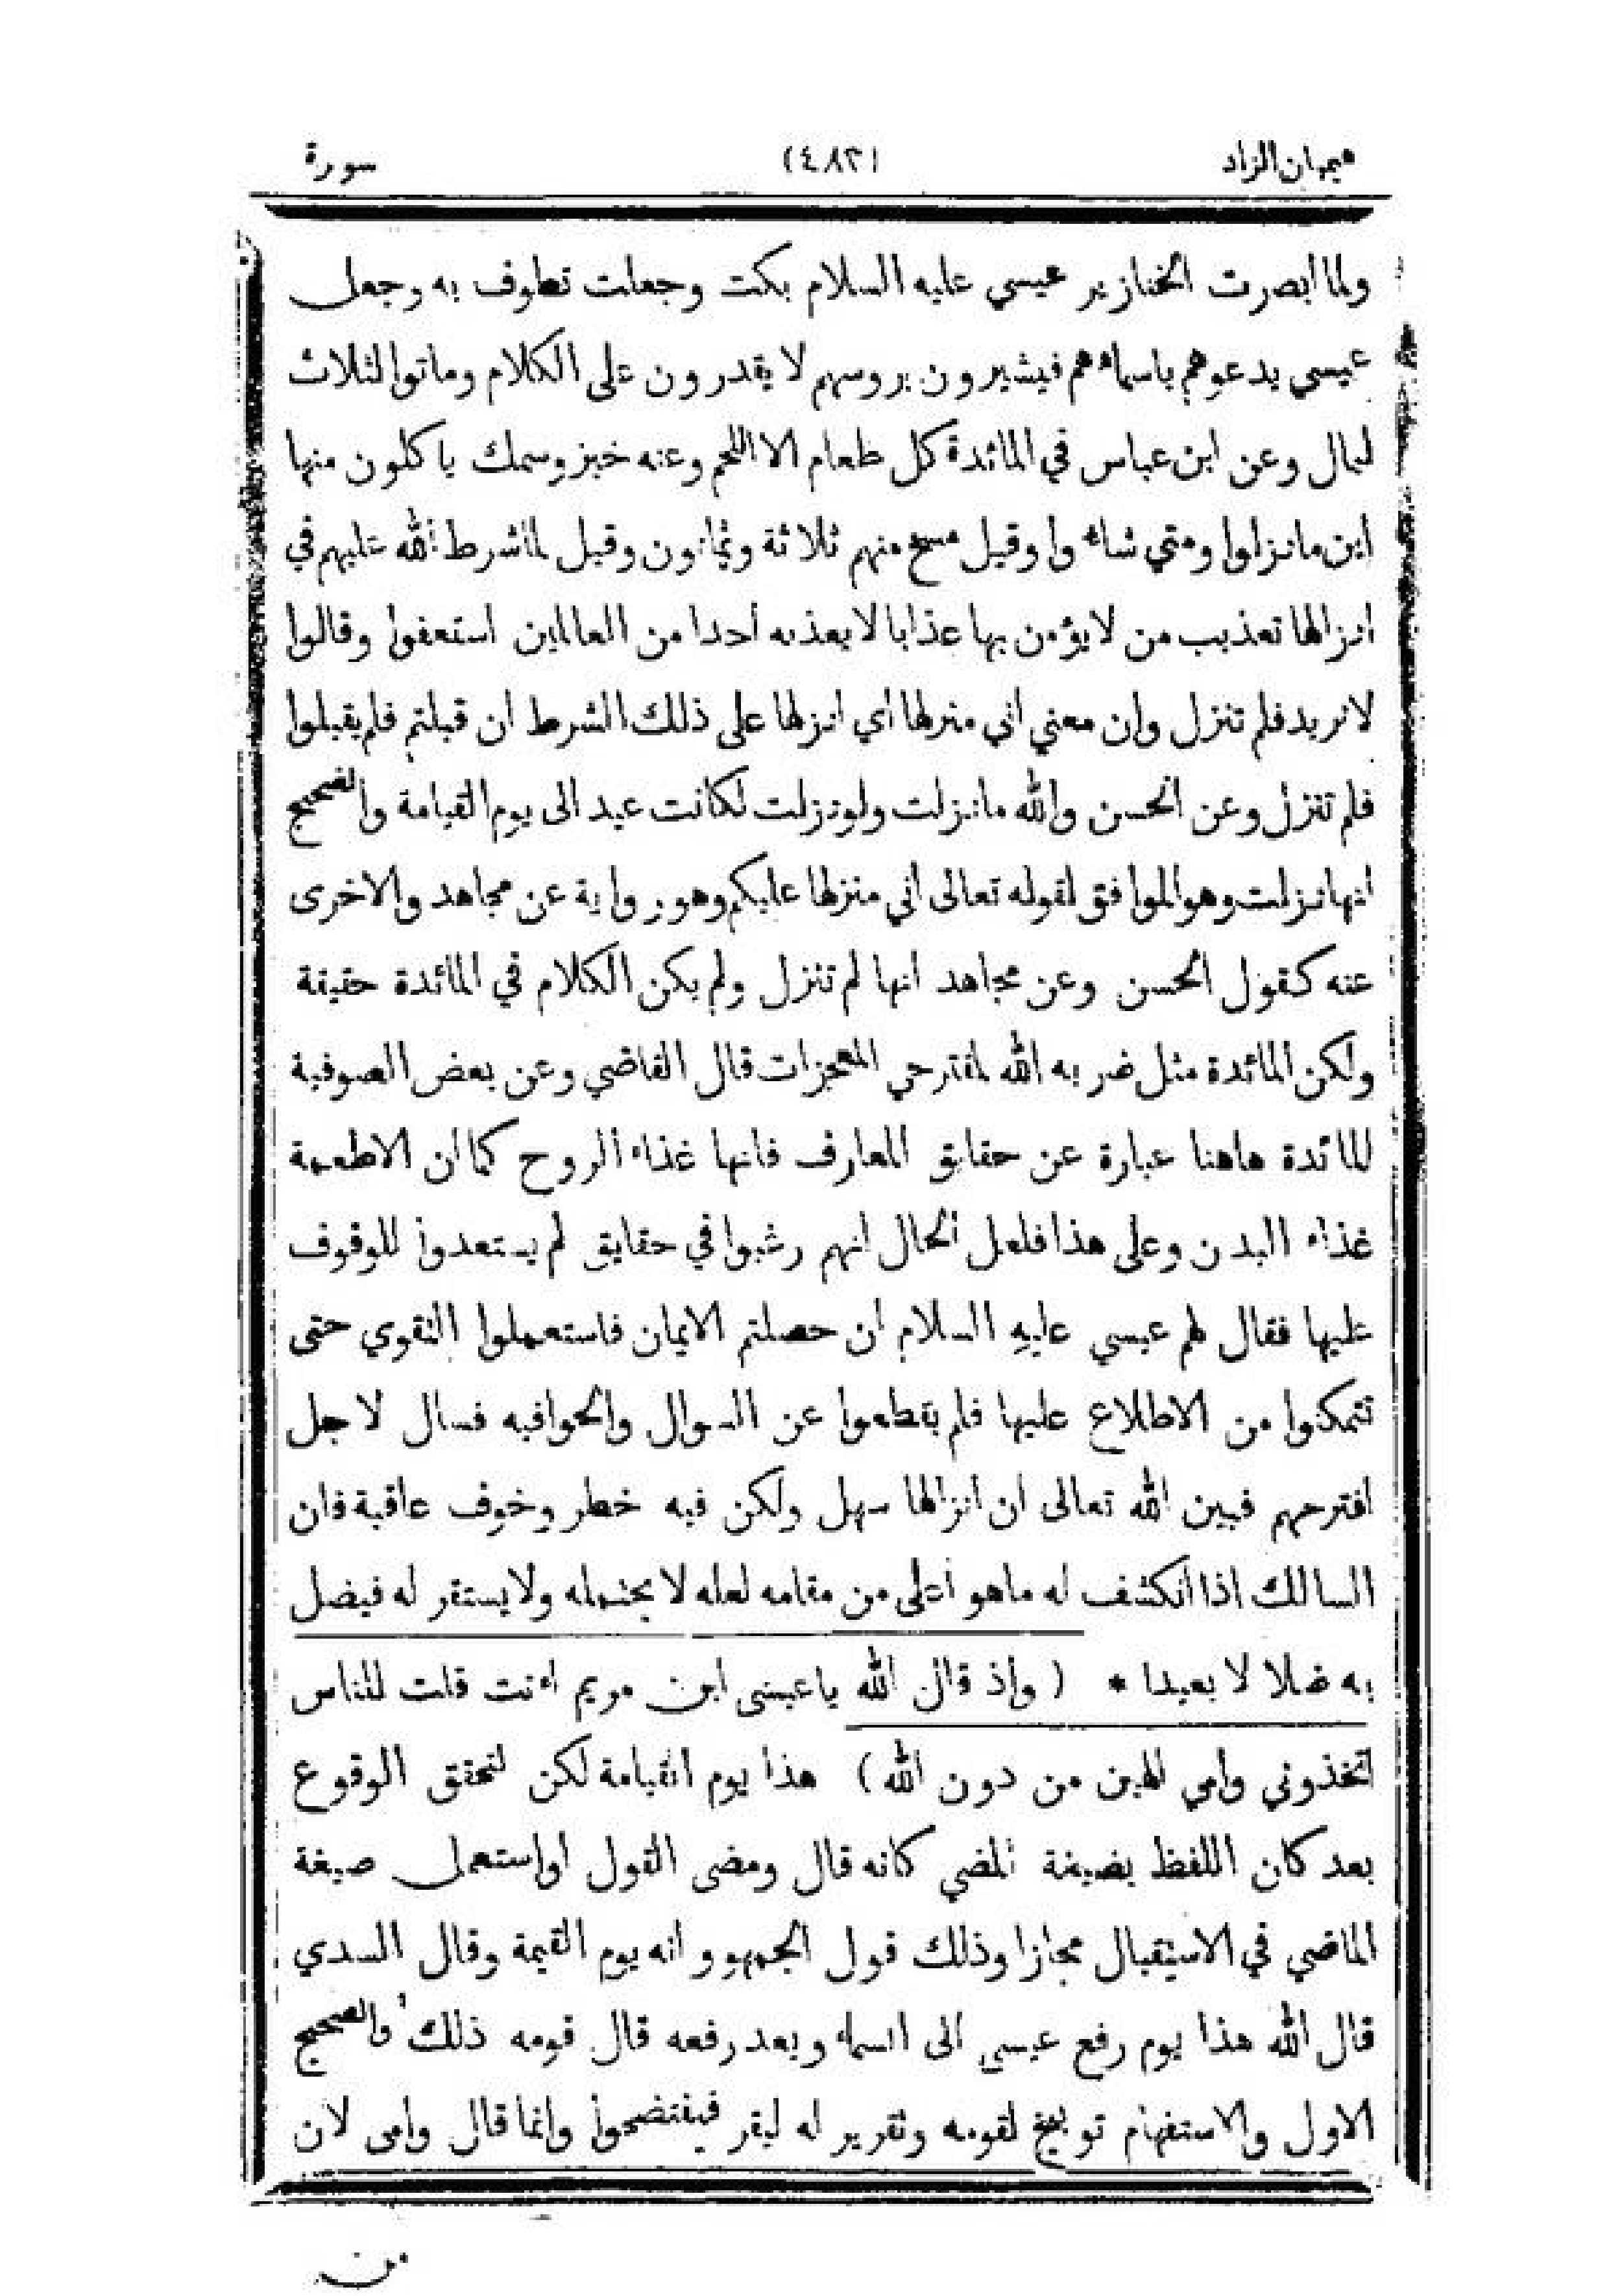 هيميان الزاد (٤٨٢) سورة
ولما ابصرت الخنازير عيسي عليه السلام بكت وجعلت تطوف به وجعل
عيسي يدعوهم باسماءهم فيشيرون بروسهم لا يقدرون على الكلام وماتوا لثلاث
ليال وعن ابن عباس في المائدة كل طعام الا اللحم وعنه خبز وسمك ياكلون منها
اين ما نزلوا ومتي شاءوا وقيل مسخ منهم ثلاثة وثمانون وقيل لما شرط الله عليهم في
انزالها تعذيب من لا يؤمن بها عذابا لا يعذبه أحدا من العالمين استعفوا وقالوا
لا نريد فلم تنزل وان معني اني منزلها اي انزلها على ذلك الشرط ان قبلتم فلم يقبلوا
فلم تنزل وعن الحسن والله ما نزلت ولو نزلت لكانت عيد الى يوم القيامة والصحيح
انها نزلت وهو الموافق لقوله تعالى اني منزلها عليكم وهو رواية عن مجاهد والاخرى
عنه كقول الحسن وعن مجاهد انها لم تنزل ولم يكن الكلام في المائدة حقيقة
ولكن المائدة مثل ضربه الله لمقترحي المعجزات قال القاضي وعن بعض الصوفية
المائدة هاهنا عبارة عن حقايق المعارف فانها غذاء الروح كما ان الاطعمة
غذاء البدن وعلى هذا فلعل الحال انهم رغبوا في حقايق لم يستعدوا للوقوف
عليها فقال لهم عيسي عليه السلام ان حصلتم الايمان فاستعملوا التقوي حتى
تتمكنوا من الاطلاع عليها فلم يقطعوا عن السوال والحوافيه فسال لاجل
اقترحهم فبين الله تعالى ان انزالها سهل ولكن فيه خطر وخوف عاقبة فان
السالك اذا انكشف له ما هو أعلى من مقامه لعله لا يحتمله ولا يستقر له فيضل
به ضلالا بعيدا * ( واذ قال الله ياعيسى ابن مريم اءنت قلت للناس
اتخذوني وامي الهين من دون الله) هذا يوم القيامة لكن لتحقق الوقوع
بعد كان اللفظ بصيغة المضي كانه قال ومضى القول او استعمل صيغة
الماضي في الاستقبال مجازا وذلك قول الجمهور انه يوم القيمة وقال السدي
قال الله هذا يوم رفع عيسي الى السماء وبعد رفعه قال قومه ذلك والصحيح
الاول والاستفهام توبيخ لقومه وتقرير له ليقر فيفتضحوا وانما قال وامى لان
من